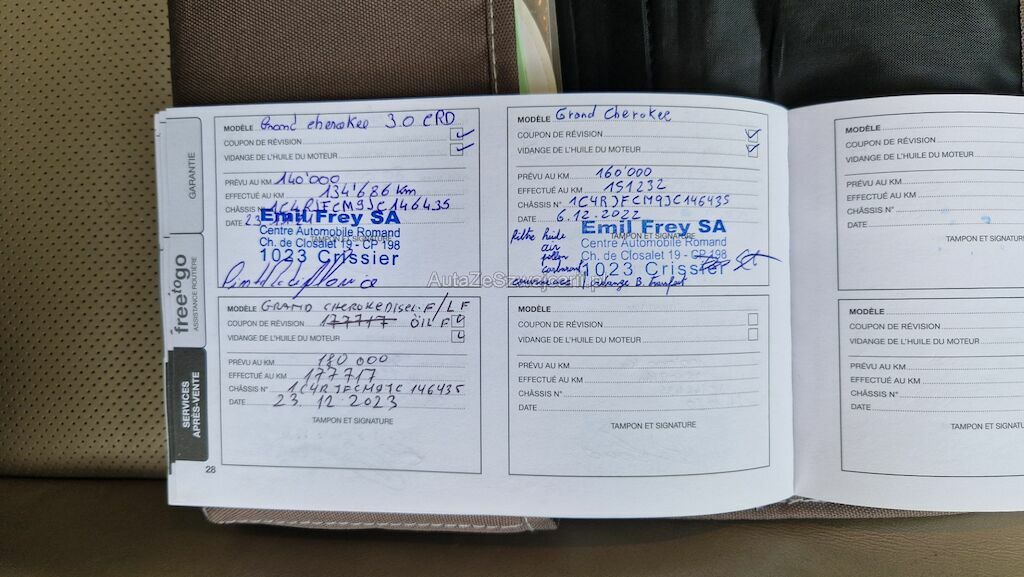 GARANTIE
freetogo
ASSISTANCE ROUTIÈRE
SERVICES
APRÈS-VENTE
MODÈLE Grand cherokee 3.0 CRD
COUPON DE RÉVISION
VIDANGE DE L'HUILE DU MOTEUR
PRÉVU AU KM 140'000
EFFECTUÉ AU KM 134'686 km
CHÂSSIS N° 1C4RJFCM9JC146435
DATE
Emil Frey SA
Centre Automobile Romand
TAMPON ET SIGNATURE
Ch. de Closalet 19 - CP 198
1023 Crissier
MODÈLE Grand Cherokee
COUPON DE RÉVISION
VIDANGE DE L'HUILE DU MOTEUR
PRÉVU AU KM 160'000
EFFECTUÉ AU KM 151232
CHÂSSIS N° 1C4RJFCM9JC146435
DATE 6.12.2022
Emil Frey SA
TAMPON ET SIGNATURE
Centre Automobile Romand
Ch. de Closalet 19 - CP 198
1023 Crissier
filtre huile
air
pollen
carburant
vidange B.
MODÈLE GRAND CHEROKE Disel. F/LF
COUPON DE RÉVISION 177717 ÖIL F
VIDANGE DE L'HUILE DU MOTEUR
PRÉVU AU KM 180 000
EFFECTUÉ AU KM 177717
CHÂSSIS N° 1C4RJFCM9JC146435
DATE 23.12.2023
TAMPON ET SIGNATURE
28
MODÈLE
COUPON DE RÉVISION
VIDANGE DE L'HUILE DU MOTEUR
PRÉVU AU KM
EFFECTUÉ AU KM
CHÂSSIS N°
DATE
TAMPON ET SIGNATURE
MODÈLE
COUPON DE RÉVISION
VIDANGE DE L'HUILE DU MOTEUR
PRÉVU AU KM
EFFECTUÉ AU KM
CHÂSSIS N°
DATE
TAMPON ET SIGNATUR
MODÈLE
COUPON DE RÉVISION
VIDANGE DE L'HUILE DU MOTEUR
PRÉVU AU KM
EFFECTUÉ AU KM
CHÂSSIS N°
DATE
TAMPON ET SIGNATUR